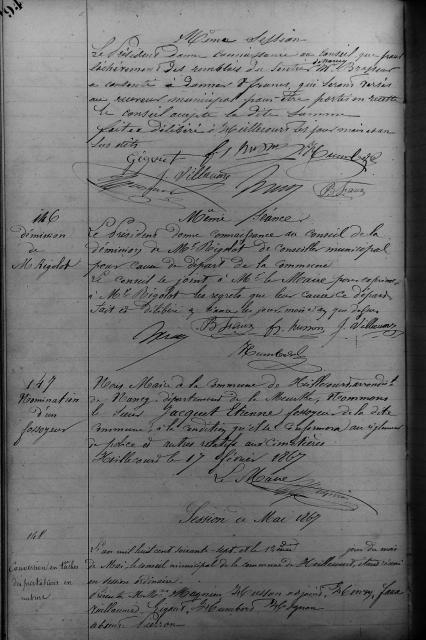 Même Session
Le Président donne connaissance au conseil que pour
l'achèvement des remblais du sentier de Nancy Mr Brasseur
a consenti à donner francs, qui seront versés
au receveur municipal pour être portés en recette
Le conseil accepte la dite somme
fait et délibéré à Heillecourt les jour mois et an
sus dits
J. Villaume
146
démission
de
Mr Rigolot
Même Séance
Le Président donne connaissance au conseil de la
démission de Mr Rigolot de conseiller municipal
pour cause de départ de la commune
Le conseil se joint à Mr le Maire pour exprimer
à Mr Rigolot les regrets que leur cause ce départ
Fait et délibéré les jour, mois et an que dessus
J. Villaume
147
Nomination
d'un
fossoyeur
Nous Maire de la commune de Heillecourt, arrondt
de Nancy département de la Meurthe, Nommons
le sieur Jacquet Etienne fossoyeur de la dite
commune, à la condition qu'il se conformera au règlement
de police et autres relatifs aux cimetières
Heillecourt le 17 février 1867
Le Maire
Session de Mai 1867
148
Conversion en tâches
des prestations en
nature
L'an mil huit cent soixante sept, et le 12 jour du mois
de Mai, le conseil municipal de la commune de Heillecourt, étant réuni
en session ordinaire
Présents Magnien, Husson adjoint, Henry,
Villaume, Humbert,
absent Pierron